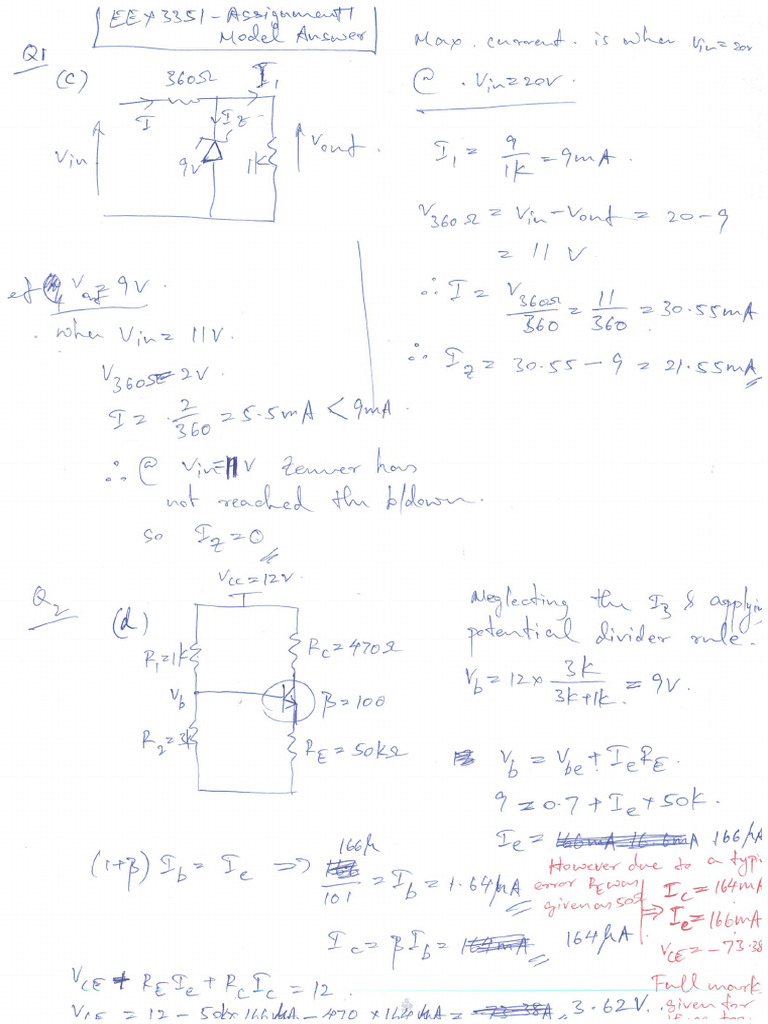 EEX3351 - Assignment 1
Model Answer
Q1
(c)
360Ω
I1
I
IZ
Vin
9V
1k
Vout.
Max. current. is when Vin = 20V
@ . Vin = 20V.
I1 = 9/1k = 9mA.
V360Ω = Vin - Vout = 20 - 9
= 11 V
∴ I = V360Ω/360 = 11/360 = 30.55mA
∴ IZ = 30.55 - 9 = 21.55mA
= 9V.
when Vin = 11V.
V360Ω = 2V.
I = 2/360 = 5.5mA < 9mA.
∴ @ Vin = 11V Zenner has
not reached the b/down.
so IZ = 0
Q2
(d)
VCC = 12V
R1 = 1k
RC = 470Ω
Vb
β = 100
R2 = 3k
RE = 50kΩ
Neglecting the IB & applyin
potential divider rule.
Vb = 12 × 3k/3k+1k = 9V.
Vb = Vbe + IeRE.
9 = 0.7 + Ie × 50k.
Ie = 166mA 16.6mA 166μA
(1+β) Ib = Ie ⇒ 166μ/101 = Ib = 1.64μA
Ic = βIb = 164mA 164μA
However due to a typi
error RE was
given as 50Ω
⇒
Ic = 164mA
Ie = 166mA
VCE = -73.38
Full mark
given for
VCE + REIe + RCIC = 12.
VCE = 12 - 50k×166μA - 470×164μA = -73.38A 3.62V.